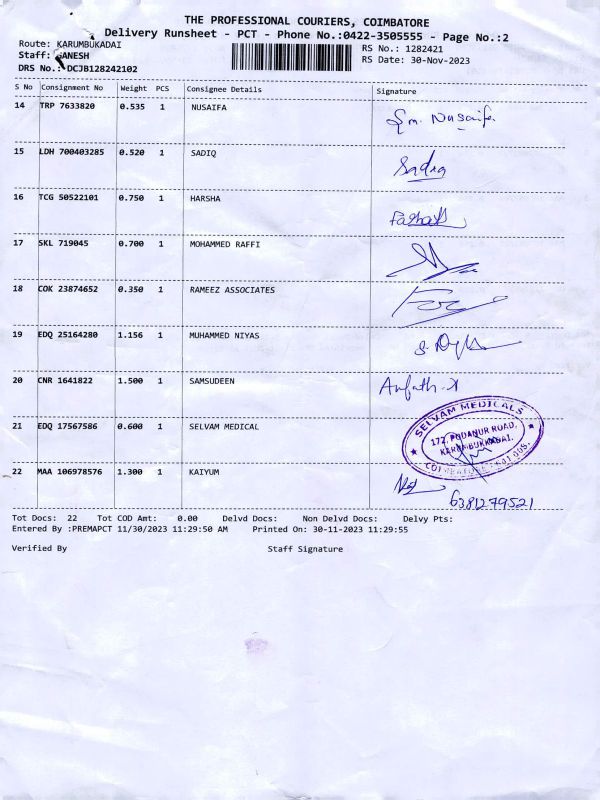 THE PROFESSIONAL COURIERS, COIMBATORE
Delivery Runsheet - PCT - Phone No.:0422-3505555 - Page No.:2
Route: KARUMBUKADAI RS No.: 1282421
Staff: GANESH RS Date: 30-Nov-2023
DRS No.: DCJB128242102
S No Consignment No Weight PCS Consignee Details Signature
14 TRP 7633820 0.535 1 NUSAIFA Nusaifa
15 LDH 700403285 0.520 1 SADIQ Sadiq
16 TCG 50522101 0.750 1 HARSHA
17 SKL 719045 0.700 1 MOHAMMED RAFFI
18 COK 23874652 0.350 1 RAMEEZ ASSOCIATES
19 EDQ 25164280 1.156 1 MUHAMMED NIYAS
20 CNR 1641822 1.500 1 SAMSUDEEN
21 EDQ 17567586 0.600 1 SELVAM MEDICAL
SELVAM MEDICALS
172, PODANUR ROAD,
KARUMBUKKADAI.
COIMBATORE - 641 008.
22 MAA 106978576 1.300 1 KAIYUM
6381279521
Tot Docs: 22 Tot COD Amt: 0.00 Delvd Docs: Non Delvd Docs: Delvy Pts:
Entered By :PREMAPCT 11/30/2023 11:29:50 AM Printed On: 30-11-2023 11:29:55
Verified By Staff Signature